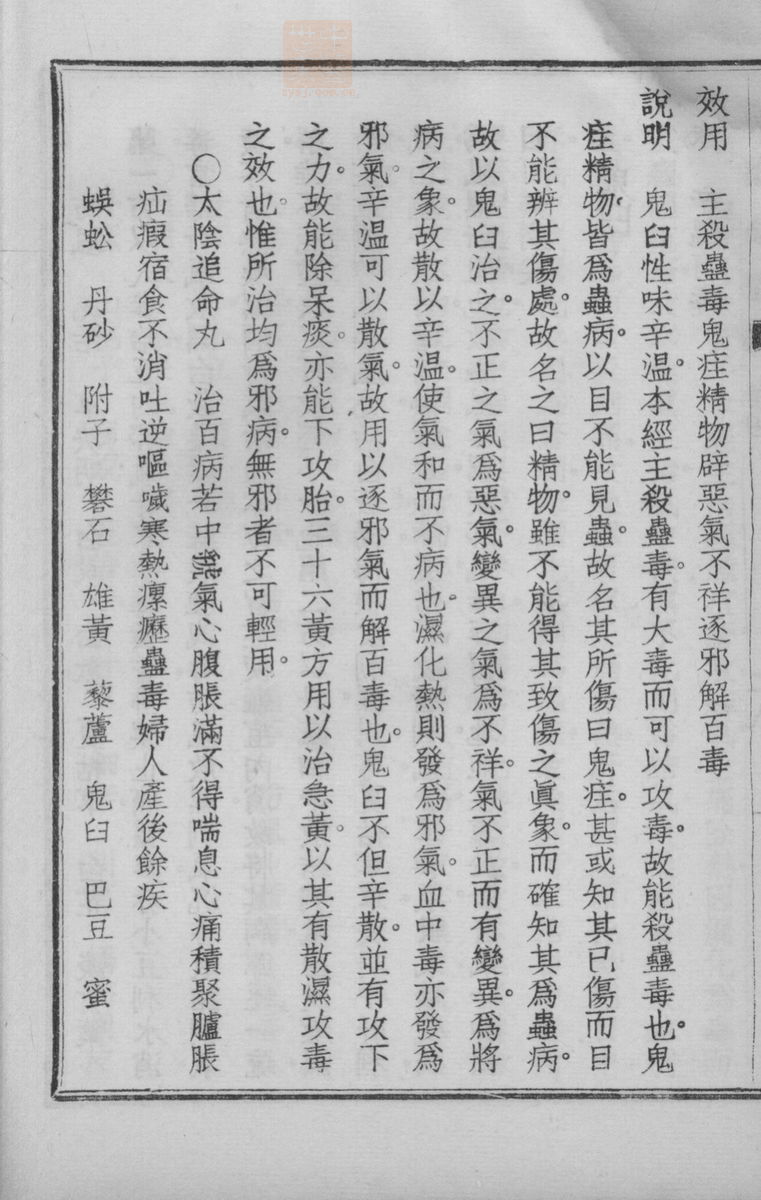 效用　主殺蠱毒鬼疰精物辟惡氣不祥逐邪解百毒
說明　鬼臼性味辛溫。本經主殺蠱毒。有大毒而可以攻毒。故能殺蠱毒也。鬼
疰精物。皆爲蟲病。以目不能見蟲。故名其所傷曰鬼疰。甚或知其已傷而目
不能辨其傷處。故名之曰精物。雖不能得其致傷之眞象。而確知其爲蟲病。
故以鬼臼治之。不正之氣爲惡氣。變異之氣爲不祥。氣不正而有變異。爲將
病之象。故散以辛溫。使氣和而不病也。濕化熱則發爲邪氣。血中毒亦發爲
邪氣。辛溫可以散氣。故用以逐邪氣而解百毒也。鬼臼不但辛散。並有攻下
之力。故能除呆痰。亦能下攻胎。三十六黃方用以治急黃。以其有散濕攻毒
之效也。惟所治均爲邪病。無邪者不可輕用。
〇太陰追命丸　治百病若中氣心腹脹滿不得喘息心痛積聚臚脹
疝瘕宿食不消吐逆嘔噦寒熱瘰癧蠱毒婦人產後餘疾
蜈蚣　丹砂　附子　礬石　雄黃　藜蘆　鬼臼　巴豆　蜜